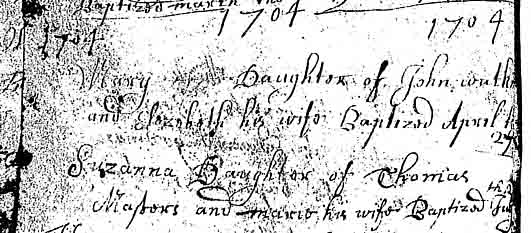 Baptized march the
1704 1704
1704
Mary Daughter of John
and Elezebeth his wife Baptized April
27
Suzanna Daughter of Thomas
Masters and marie his wife Baptized